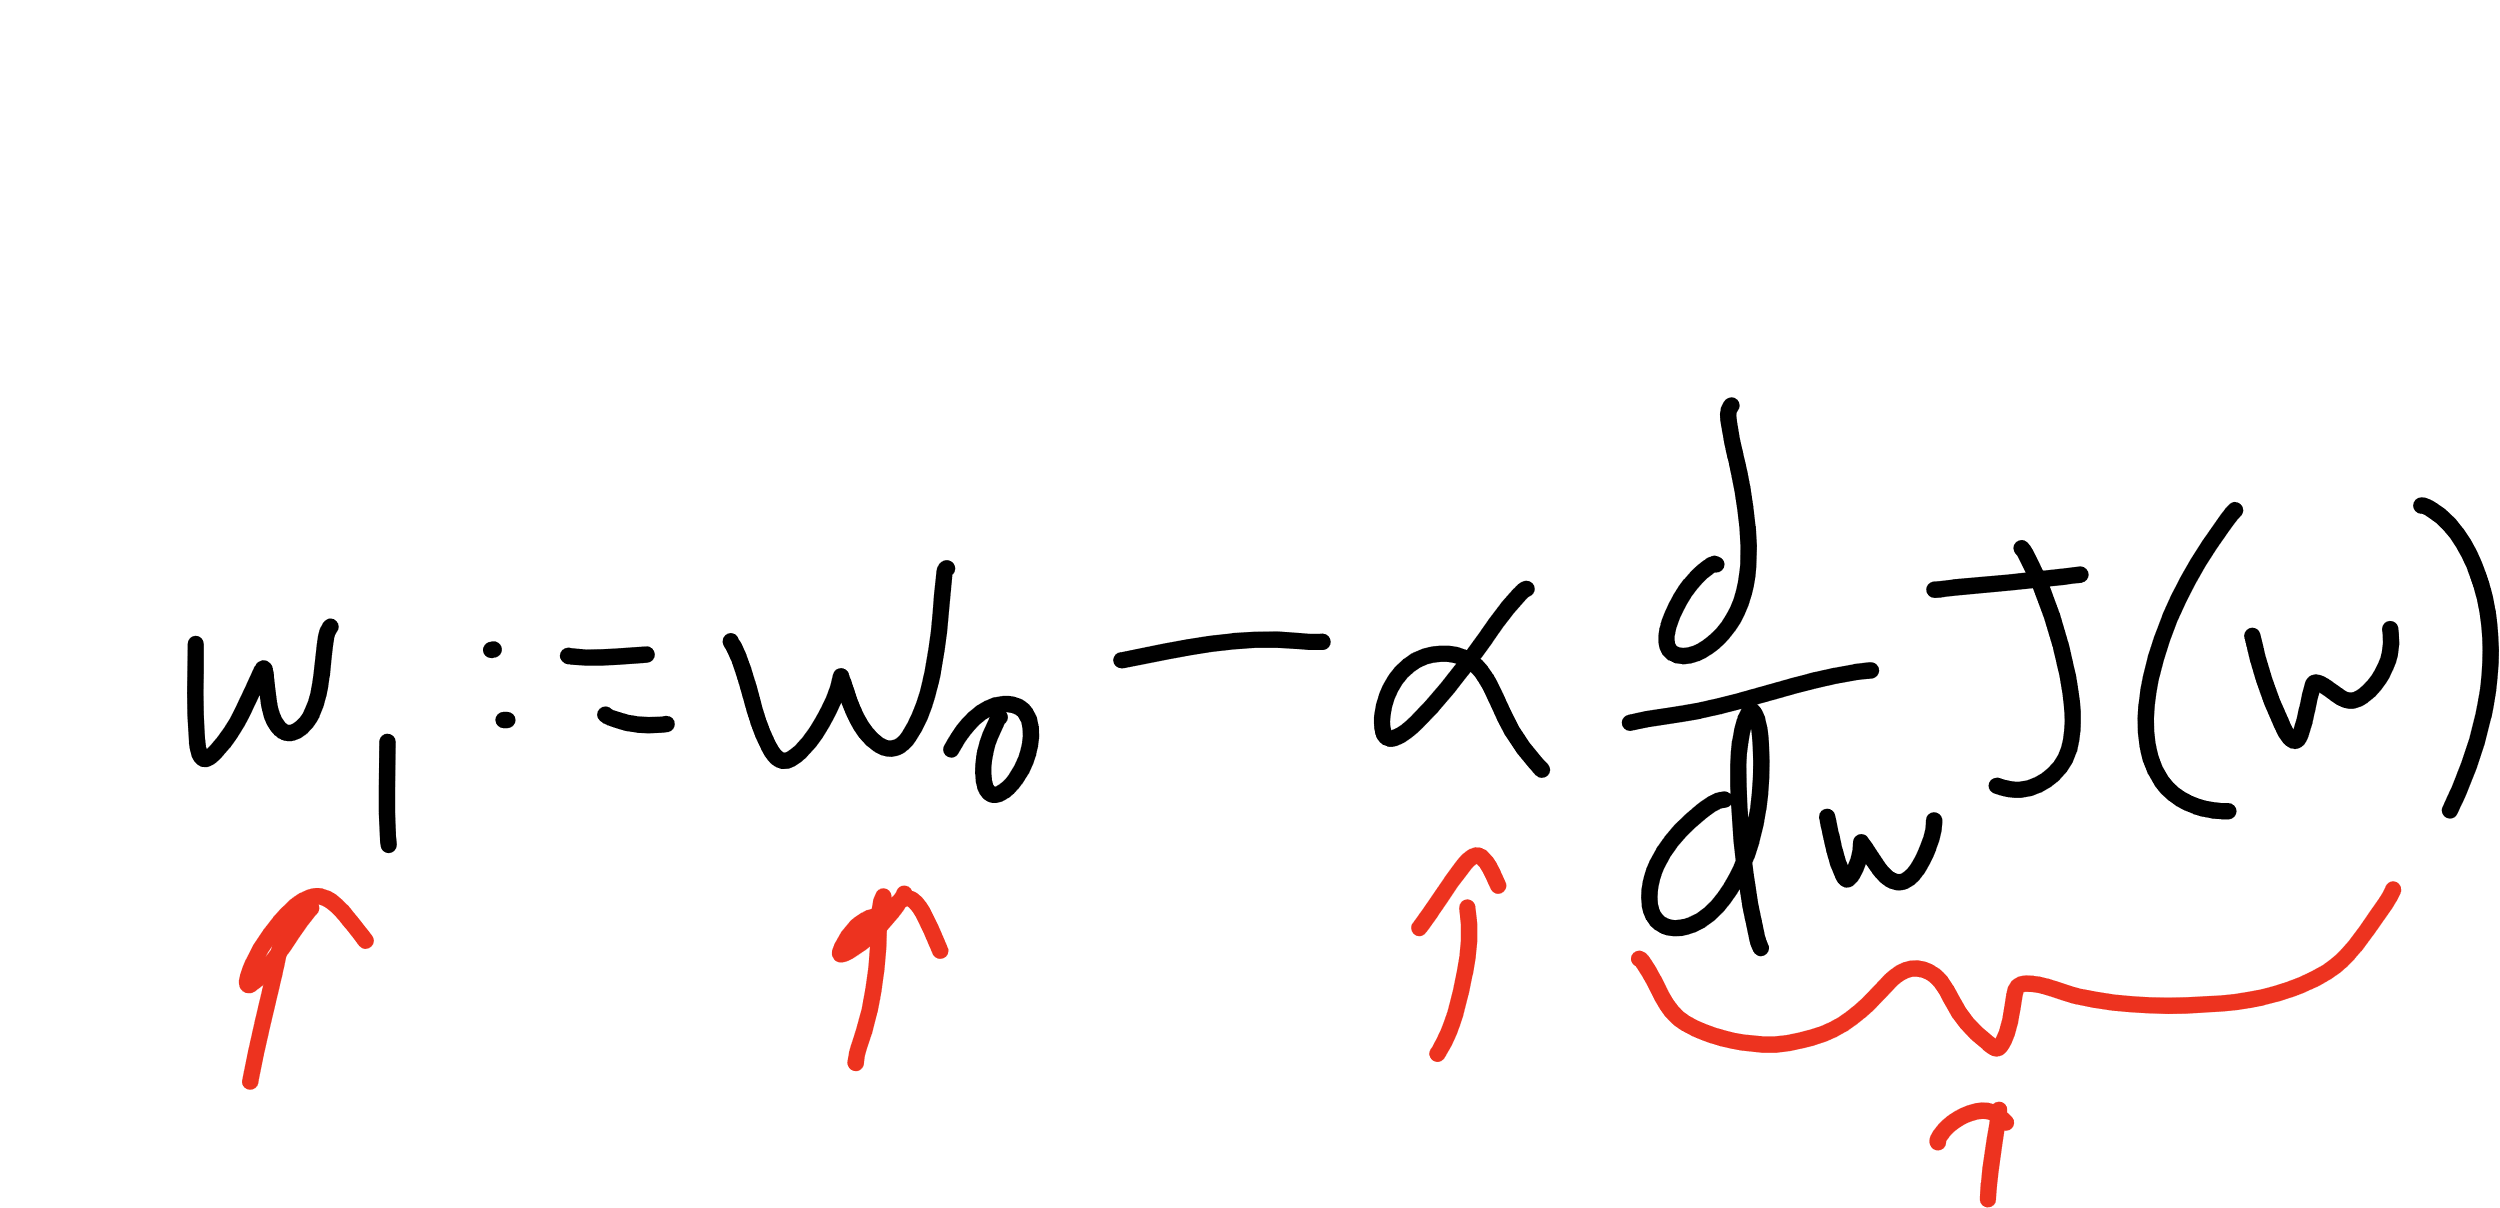 w₁ := w₀ - α d/dw J(w)